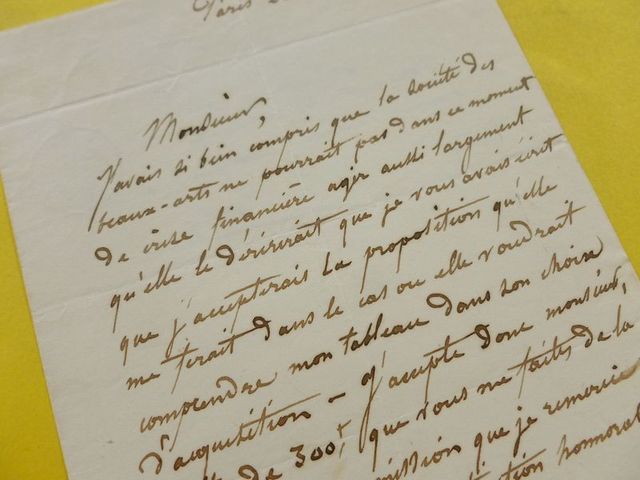 Paris
Monsieur,
J'avais si bien compris que la société des
beaux-arts ne pourrait pas dans ce moment
de crise financière agir aussi largement
qu'elle le désirerait que je vous avais écrit
que j'accepterais la proposition qu'elle
me ferait dans le cas ou elle voudrait
comprendre mon tableau dans son choix
d'acquisition - J'accepte donc monsieur,
de 300f que vous me faites de la
mission que je remercie